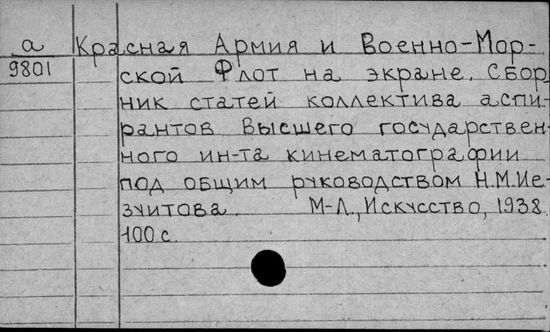 а Красная Армия и Военно-Мор-
9801 ской Флот на экране. Сбор-
ник статей коллектива аспи-
рантов Высшего государствен-
ного ин-та кинематографии
под общим руководством Н.М.Ие-
зуитова. М-Л., Искусство, 1938.
100 с.